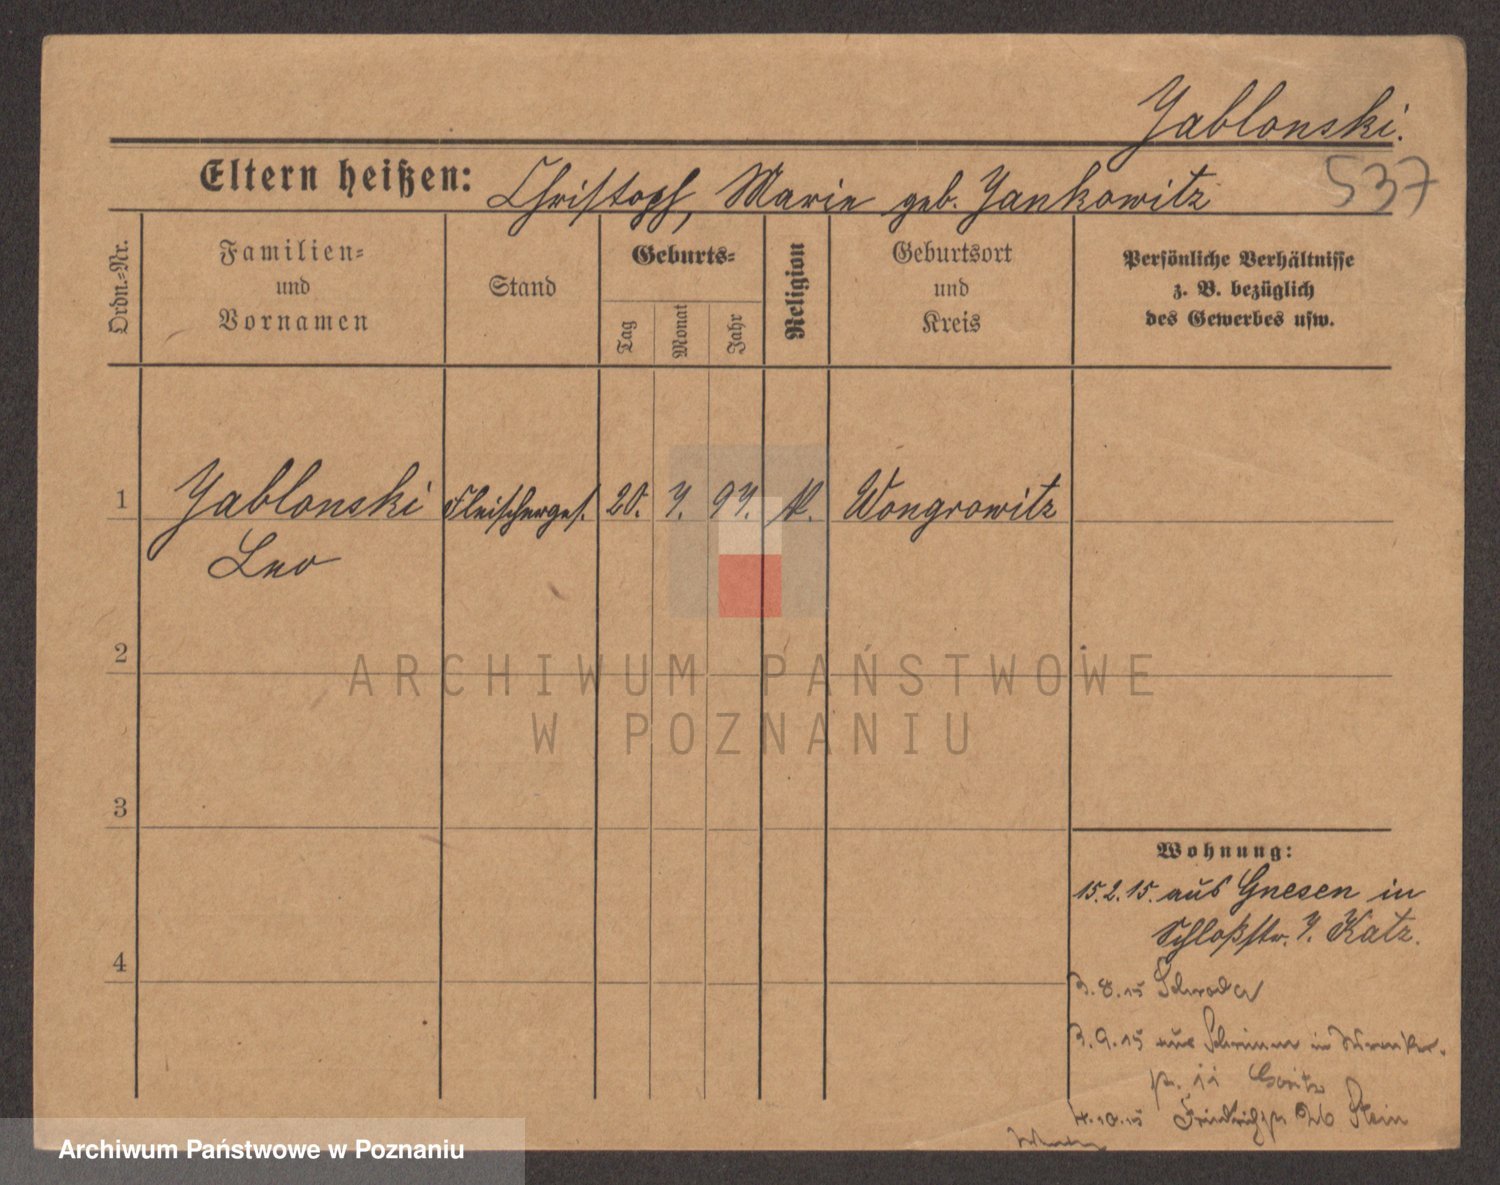 Jablonski.
537
Eltern heißen: Christoph, Marie geb. Jankowitz
Ordn.-Nr.
Familien-
und
Vornamen
Stand
Geburts-
Tag
Monat
Jahr
Religion
Geburtsort
und
Kreis
Persönliche Verhältnisse
z. B. bezüglich
des Gewerbes usw.
1 Jablonski Fleischerges. 20. 7. 97. k. Wongrowitz
Leo
2
3
4
ARCHIWUM PAŃSTWOWE
W POZNANIU
Wohnung:
15.2.15. aus Gnesen in
Schloßstr. 7. Katz.
3.8.15 Schroda
3.9.15 aus Schrimm in
11
4.10.15 Friedrichstr 26 Stein
Archiwum Państwowe w Poznaniu